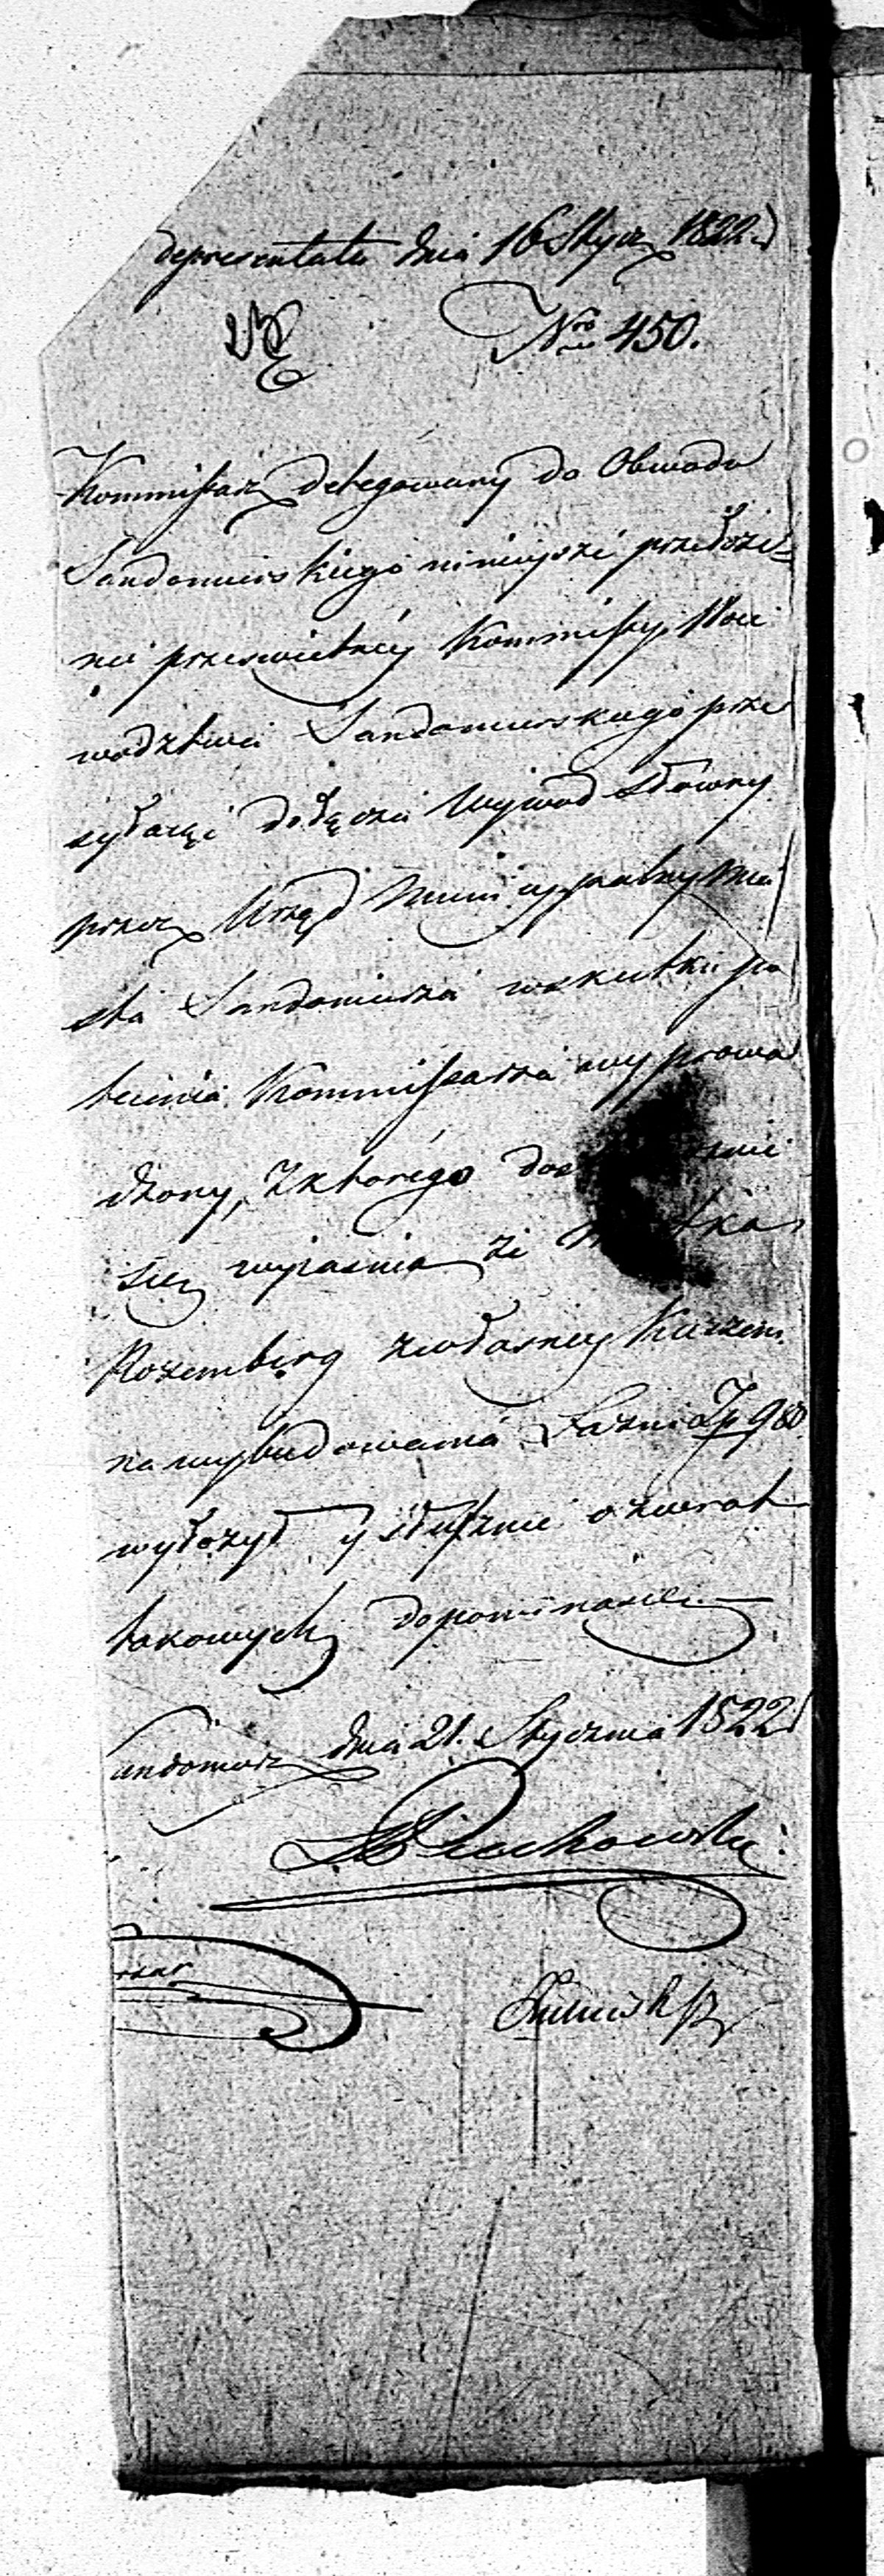 depresentata dnia 16 Stycz 1822.
Nro 450.
Kommissarz delegowany do Obwodu
Sandomirskiego ninieysze przełoże=
nie prześwietney Kommissyi Woie
wodztwa Sandomirskiego prze
syłaiąc dołącza Wywod słowny
przez Urząd Municypalny Mia
sta Sandomirza wskutku po
lecenia Kommissarza wyprowa
dzony, z ktorego
się wyiasnia że
Rozemberg z własney Kaszeni
na wybudowania Łazni Zp 980
wyłozył y słusznie o zwrot
takowych dopomina się
andomirz dnia 21. Stycznia 1822